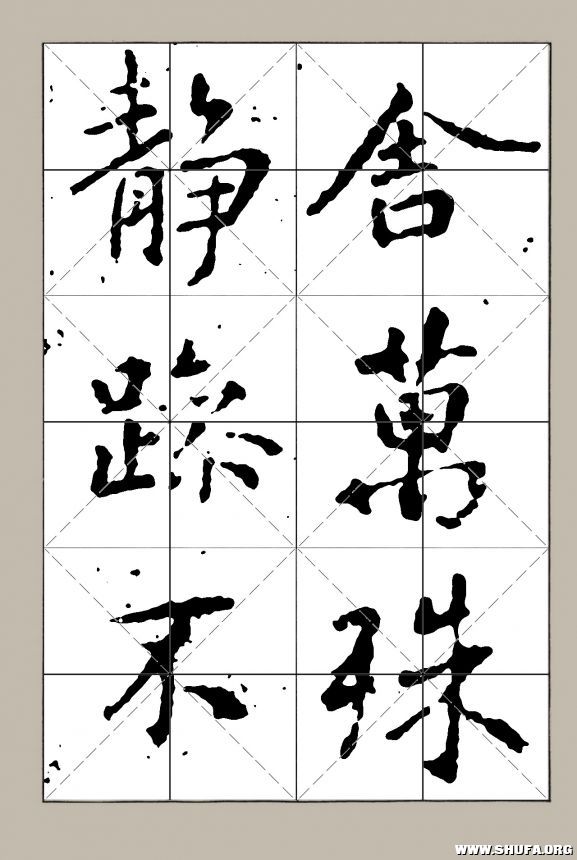 舍萬殊
靜躁不
WWW.SHUFA.ORG